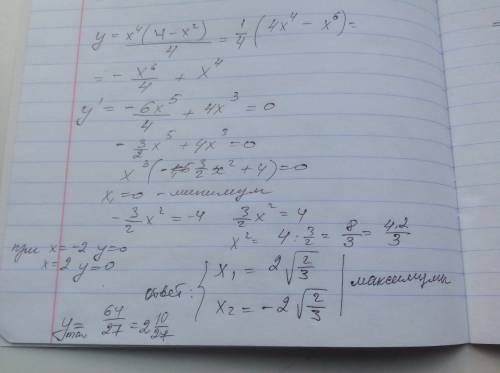 y = x⁴(4 - x²)/4 = 1/4 (4x⁴ - x⁶) =
= - x⁶/4 + x⁴
y' = - 6x⁵/4 + 4x³ = 0
- 3/2 x⁵ + 4x³ = 0
x³(- 3/2 x² + 4) = 0
x₁ = 0 - минимум
- 3/2 x² = -4 3/2 x² = 4
x² = 4 : 3/2 = 8/3 = 4·2/3
при x = -2 y = 0
x = 2 y = 0
ответ: { x₁ = 2√(2/3)
x₂ = -2√(2/3) | максимумы
y max = 64/27 = 2 10/27